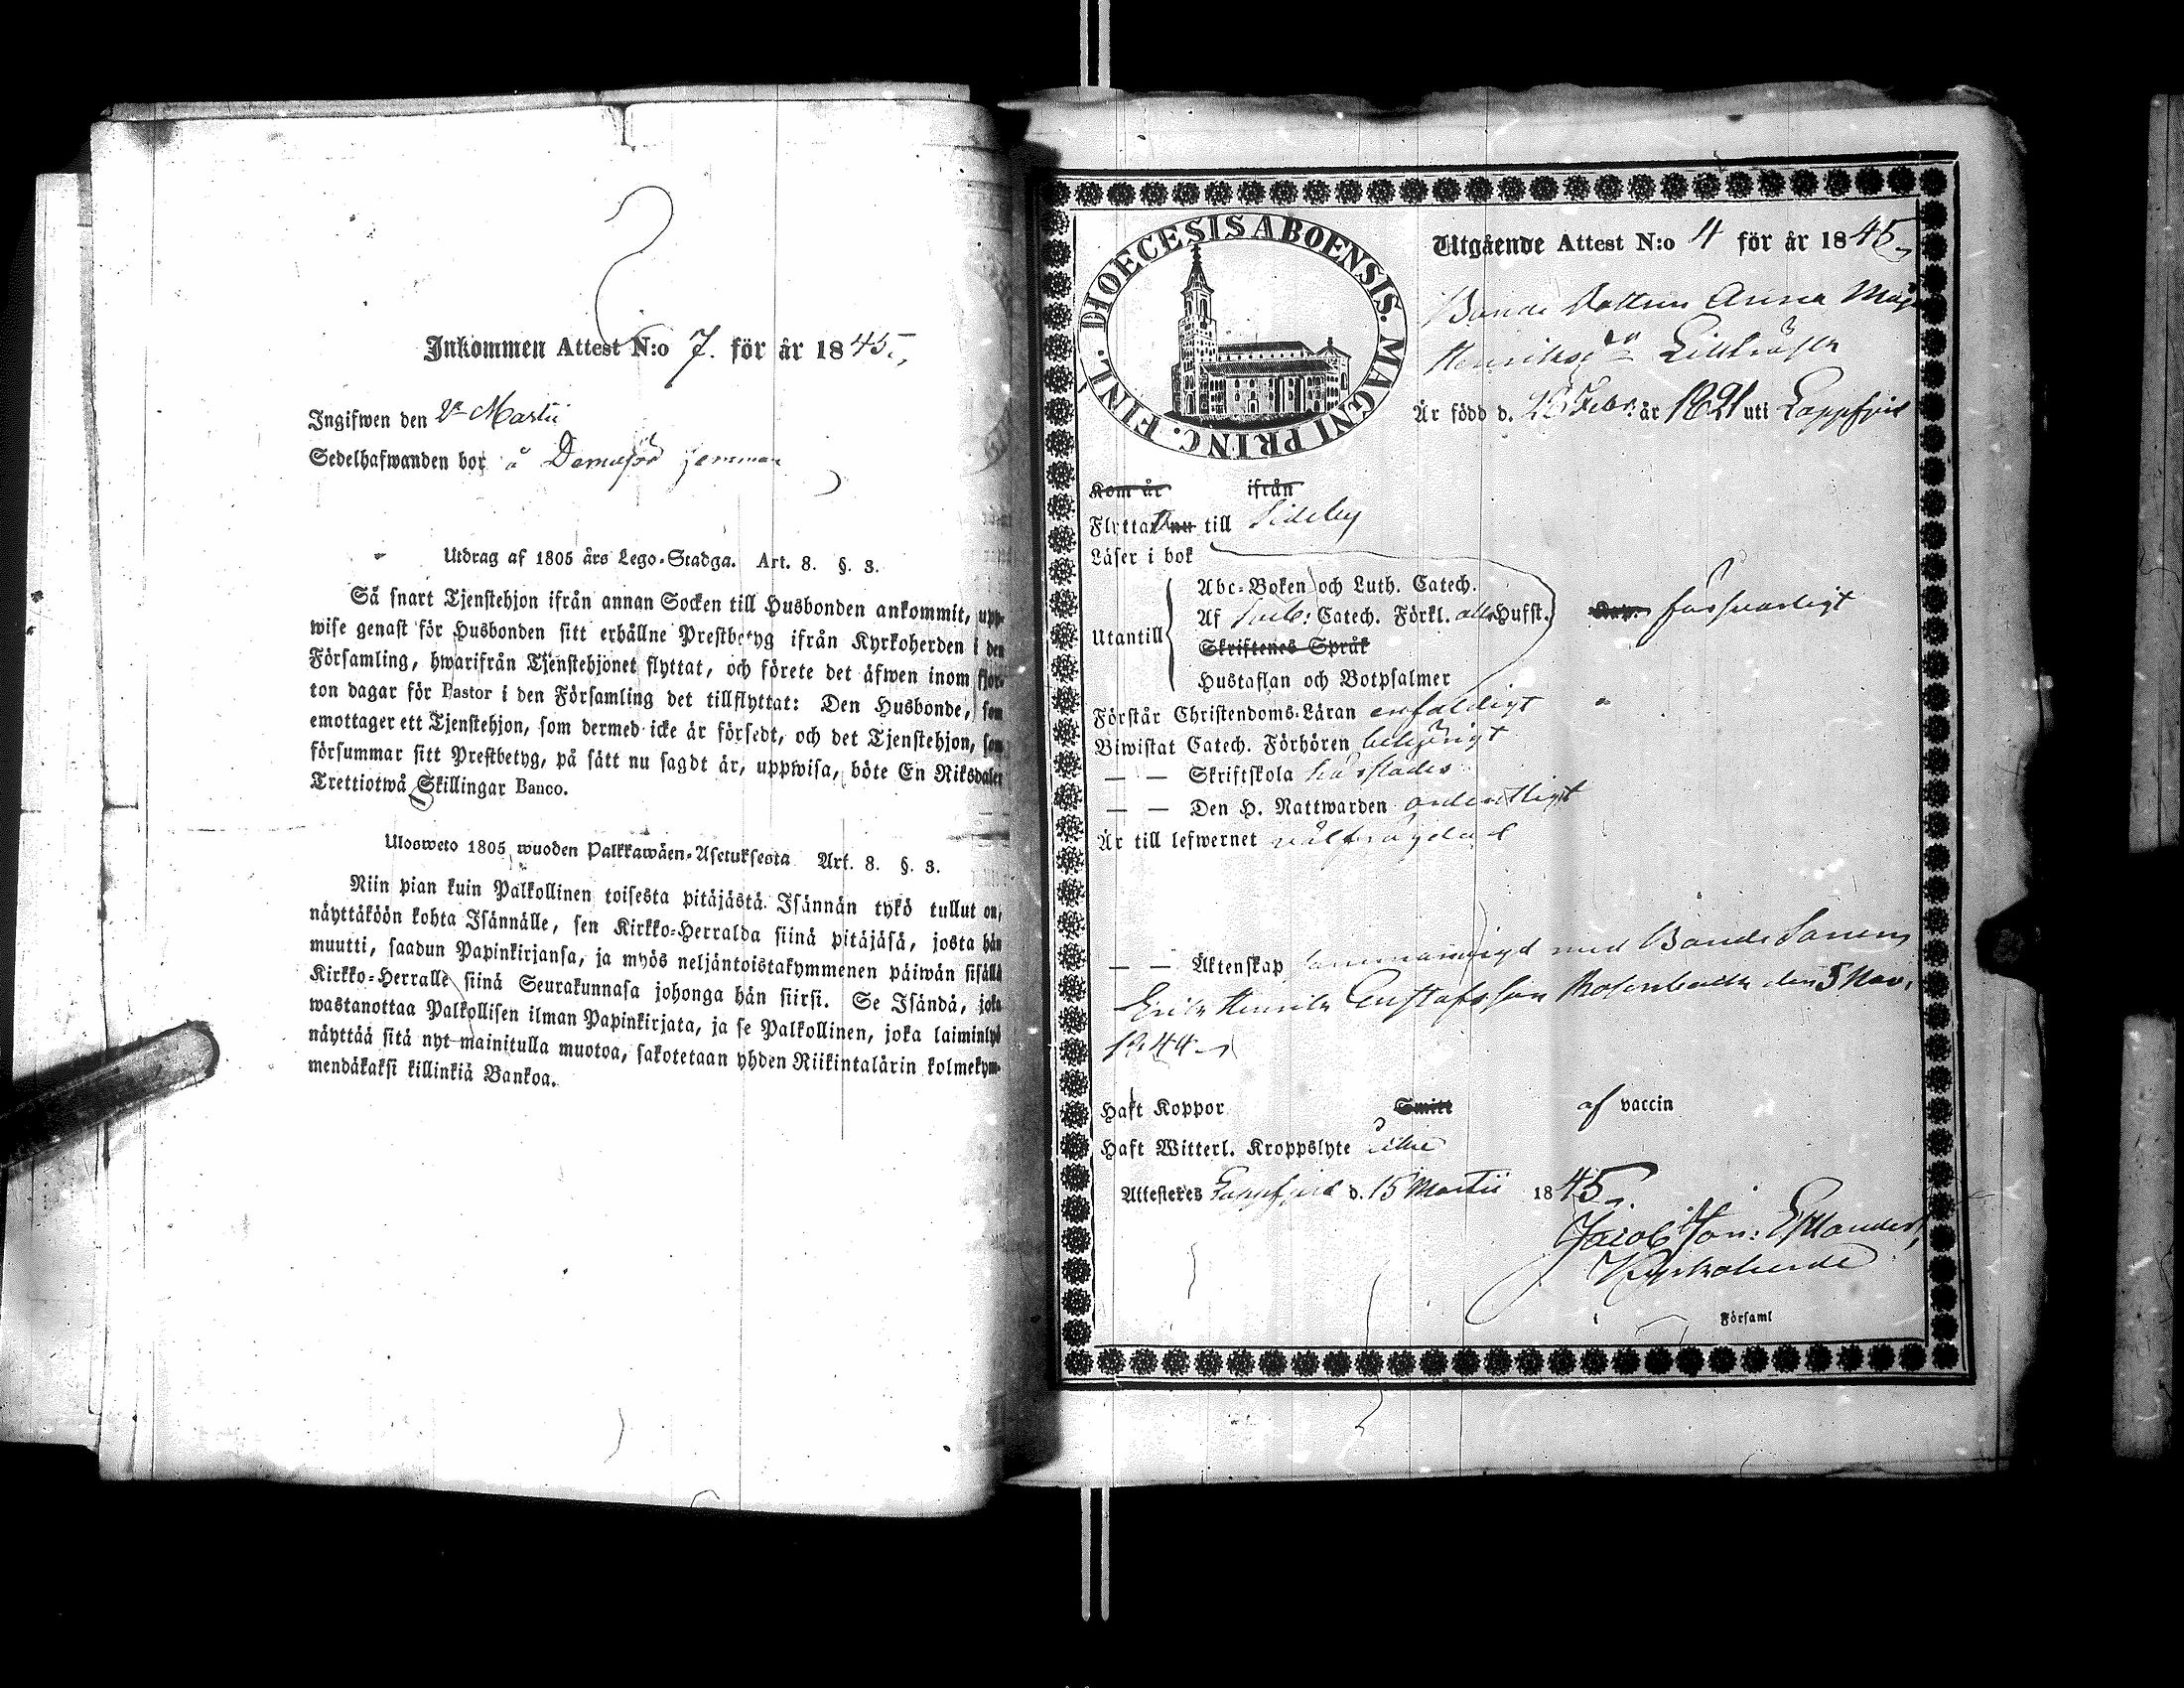 Inkommen Attest N:o 7. för år 1845.
Ingifwen den Martii
Sedelhafwanden bor å hemman
Utdrag af 1805 års Lego-Stadga. Art. 8. §. 3.
Så snart Tjenstehjon ifrån annan Socken till Husbonden ankommit, upp-
wise genast för Husbonden sitt erhållne Prestbetyg ifrån Kyrkoherden i den
Församling, hwarifrån Tjenstehjonet flyttat, och förete det äfwen inom fjor-
ton dagar för Pastor i den Församling det tillflyttat: Den Husbonde, som
emottager ett Tjenstehjon, som dermed icke är försedt, och det Tjenstehjon, som
försummar sitt Prestbetyg, på sätt nu sagdt är, uppwisa, böte En Riksdaler
Trettiotwå Skillingar Banco.
Ulosweto 1805 wuoden Palkkawäen-Asetuksesta Art. 8. §. 3.
Niin pian kuin Palkollinen toisesta pitäjästä Isännän tykö tullut on,
näyttäköön kohta Isännälle, sen Kirkko-Herralda siinä pitäjäsä, josta hän
muutti, saadun Papinkirjansa, ja myös neljäntoistakymmenen päiwän sisällä
Kirkko-Herralle siinä Seurakunnasa johonga hän siirsi. Se Isändä, joka
wastanottaa Palkollisen ilman Papinkirjata, ja se Palkollinen, joka laiminlyö
näyttää sitä nyt mainitulla muotoa, sakotetaan yhden Riikintalärin kolmekym-
mendäkaksi killinkiä Bankoa.
DIOECESIS ABOENSIS. MAGNI PRINC. FINL.
Utgående Attest N:o 4 för år 1845
Bonde Dottren Anna Maja
Henriksdr Lillträsk
Är född d. Febr. år 1821 uti Lappfjerd
Kom år ifrån
Flyttar nu till Sideby
Läser i bok
Abc-Boken och Luth. Catech.
Utantill Af Catech. Förkl. alla Hufst. försvarligt
Skriftenes Språk
Hustaflan och Botpsalmer
Förstår Christendoms-Läran enfaldigt
Biwistat Catech. Förhören behörigt
— — Skriftskola härstädes
— — Den H. Nattwarden ordentligt
Är till lefwernet välfrägdad
— — Äktenskap sammanvigd med Bonde Sonen
Erik Henrik Gustafsson Rosenback den 5 Nov.
1844
Haft Koppor Smitt af vaccin
Haft Witterl. Kroppslyte icke
Attesteres Lappfjerd d. 15 Martii 1845
Jacob Jon: Estlander,
Kyrkoherde
i Församl